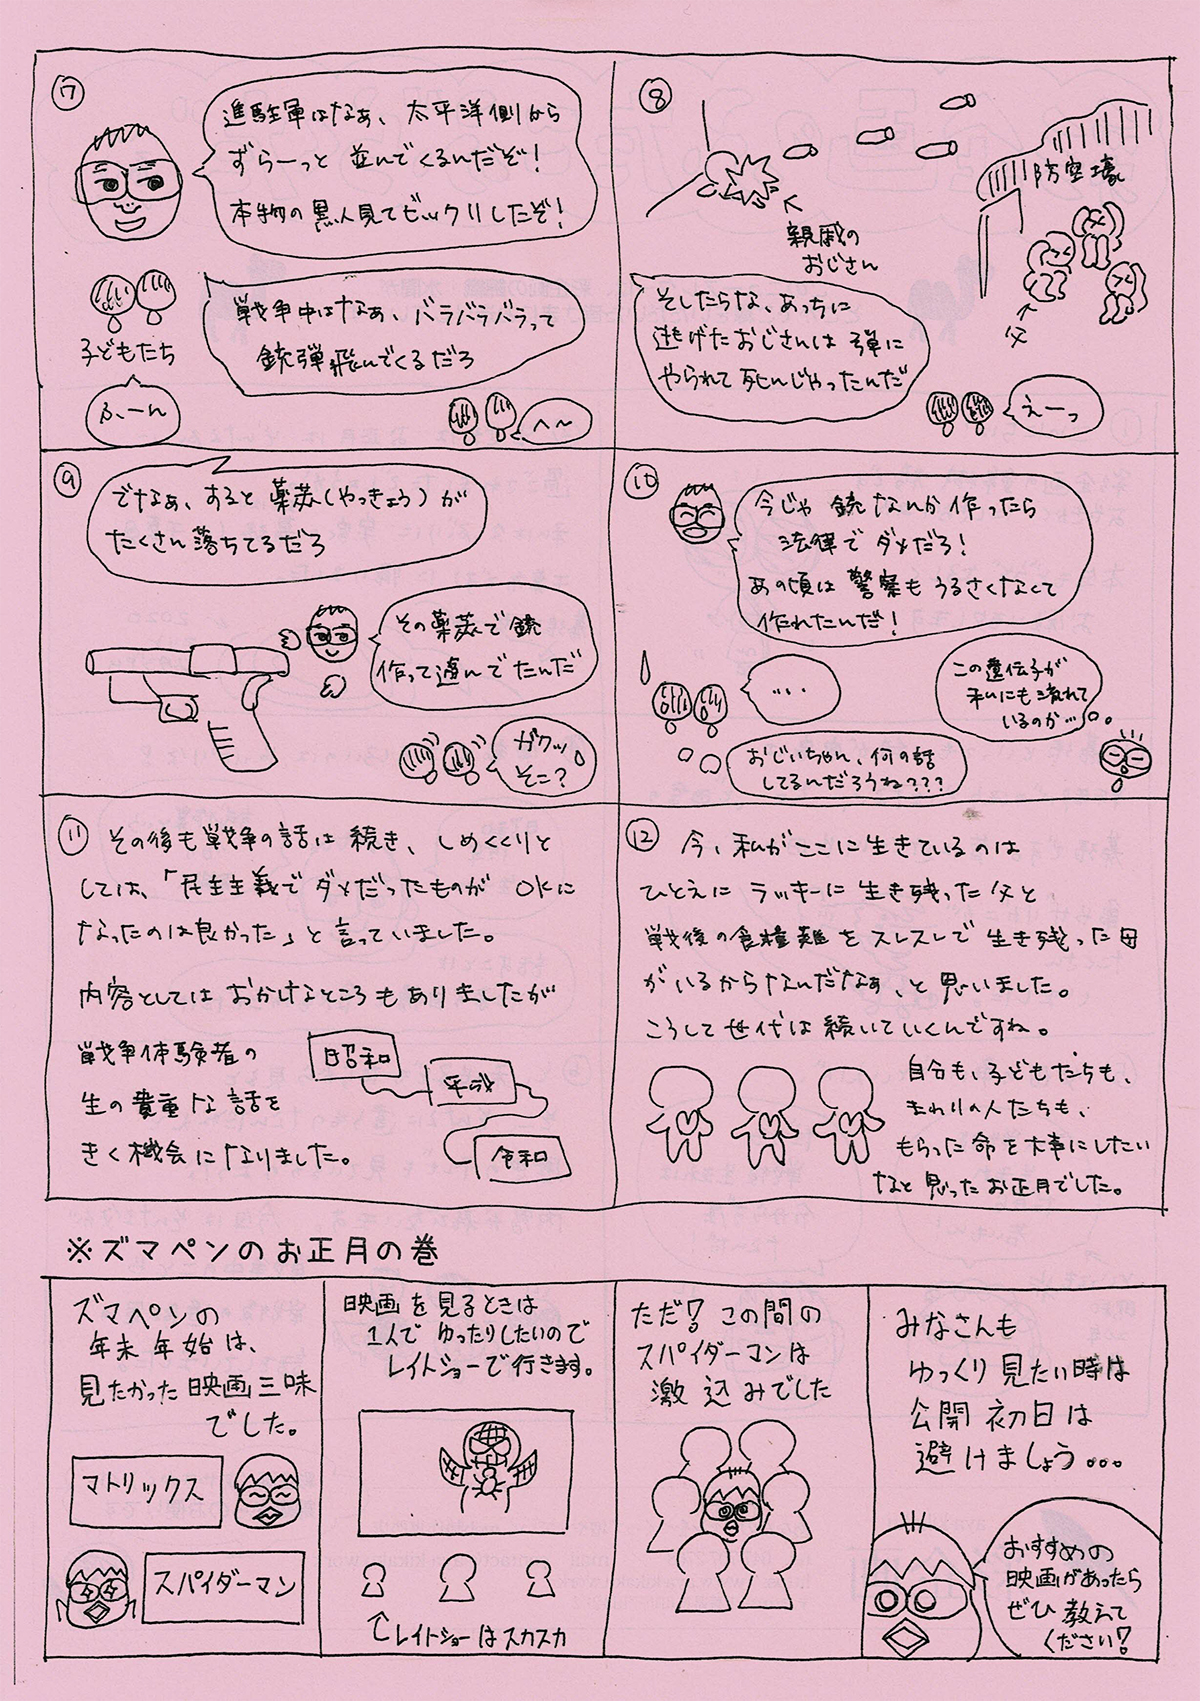 ⑦
進駐軍はなぁ、太平洋側から
ずらーっと 並んでくるんだぞ!
本物の黒人見てビックリしたぞ!
戦争中はなぁ、バラバラバラって
銃弾飛んでくるだろ
子どもたち
ふーん
へ〜
⑧
防空壕
親戚の
おじさん
父
そしたらな、あっちに
逃げたおじさんは 弾に
やられて 死んじゃったんだ
えーっ
⑨
でなぁ、すると 薬莢(やっきょう)が
たくさん落ちてるだろ
その薬莢で銃
作って遊んでたんだ
ガクッ
そこ?
⑩
今じゃ 銃なんか作ったら
法律でダメだろ!
あの頃は警察もうるさくなくて
作れたんだ!
・・・
この遺伝子が
私にも流れて
いるのか…
おじいちゃん、何の話
してるんだろうね???
⑪ その後も戦争の話は続き、しめくくりと
しては、「民主主義でダメだったものが OKに
なったのは良かった」と言っていました。
内容としてはおかしなところもありましたが
戦争体験者の
生の貴重な話を
きく機会になりました。
昭和
平成
令和
⑫ 今、私がここに生きているのは
ひとえに ラッキーに生き残った父と、
戦後の食糧難をスレスレで生き残った母
がいるからなんだなぁ、と思いました。
こうして世代は続いていくんですね。
自分も、子どもたちも、
まわりの人たちも、
もらった命を大事にしたい
なと思ったお正月でした。
※ズマペンのお正月の巻
ズマペンの
年末年始は、
見たかった映画三昧
でした。
マトリックス
スパイダーマン
映画を見るときは
1人でゆったりしたいので
レイトショーで行きます。
レイトショーはスカスカ
ただ!この間の
スパイダーマンは
激込みでした
みなさんも
ゆっくり見たい時は
公開初日は
避けましょう…
おすすめの
映画があったら
ぜひ教えて
ください!